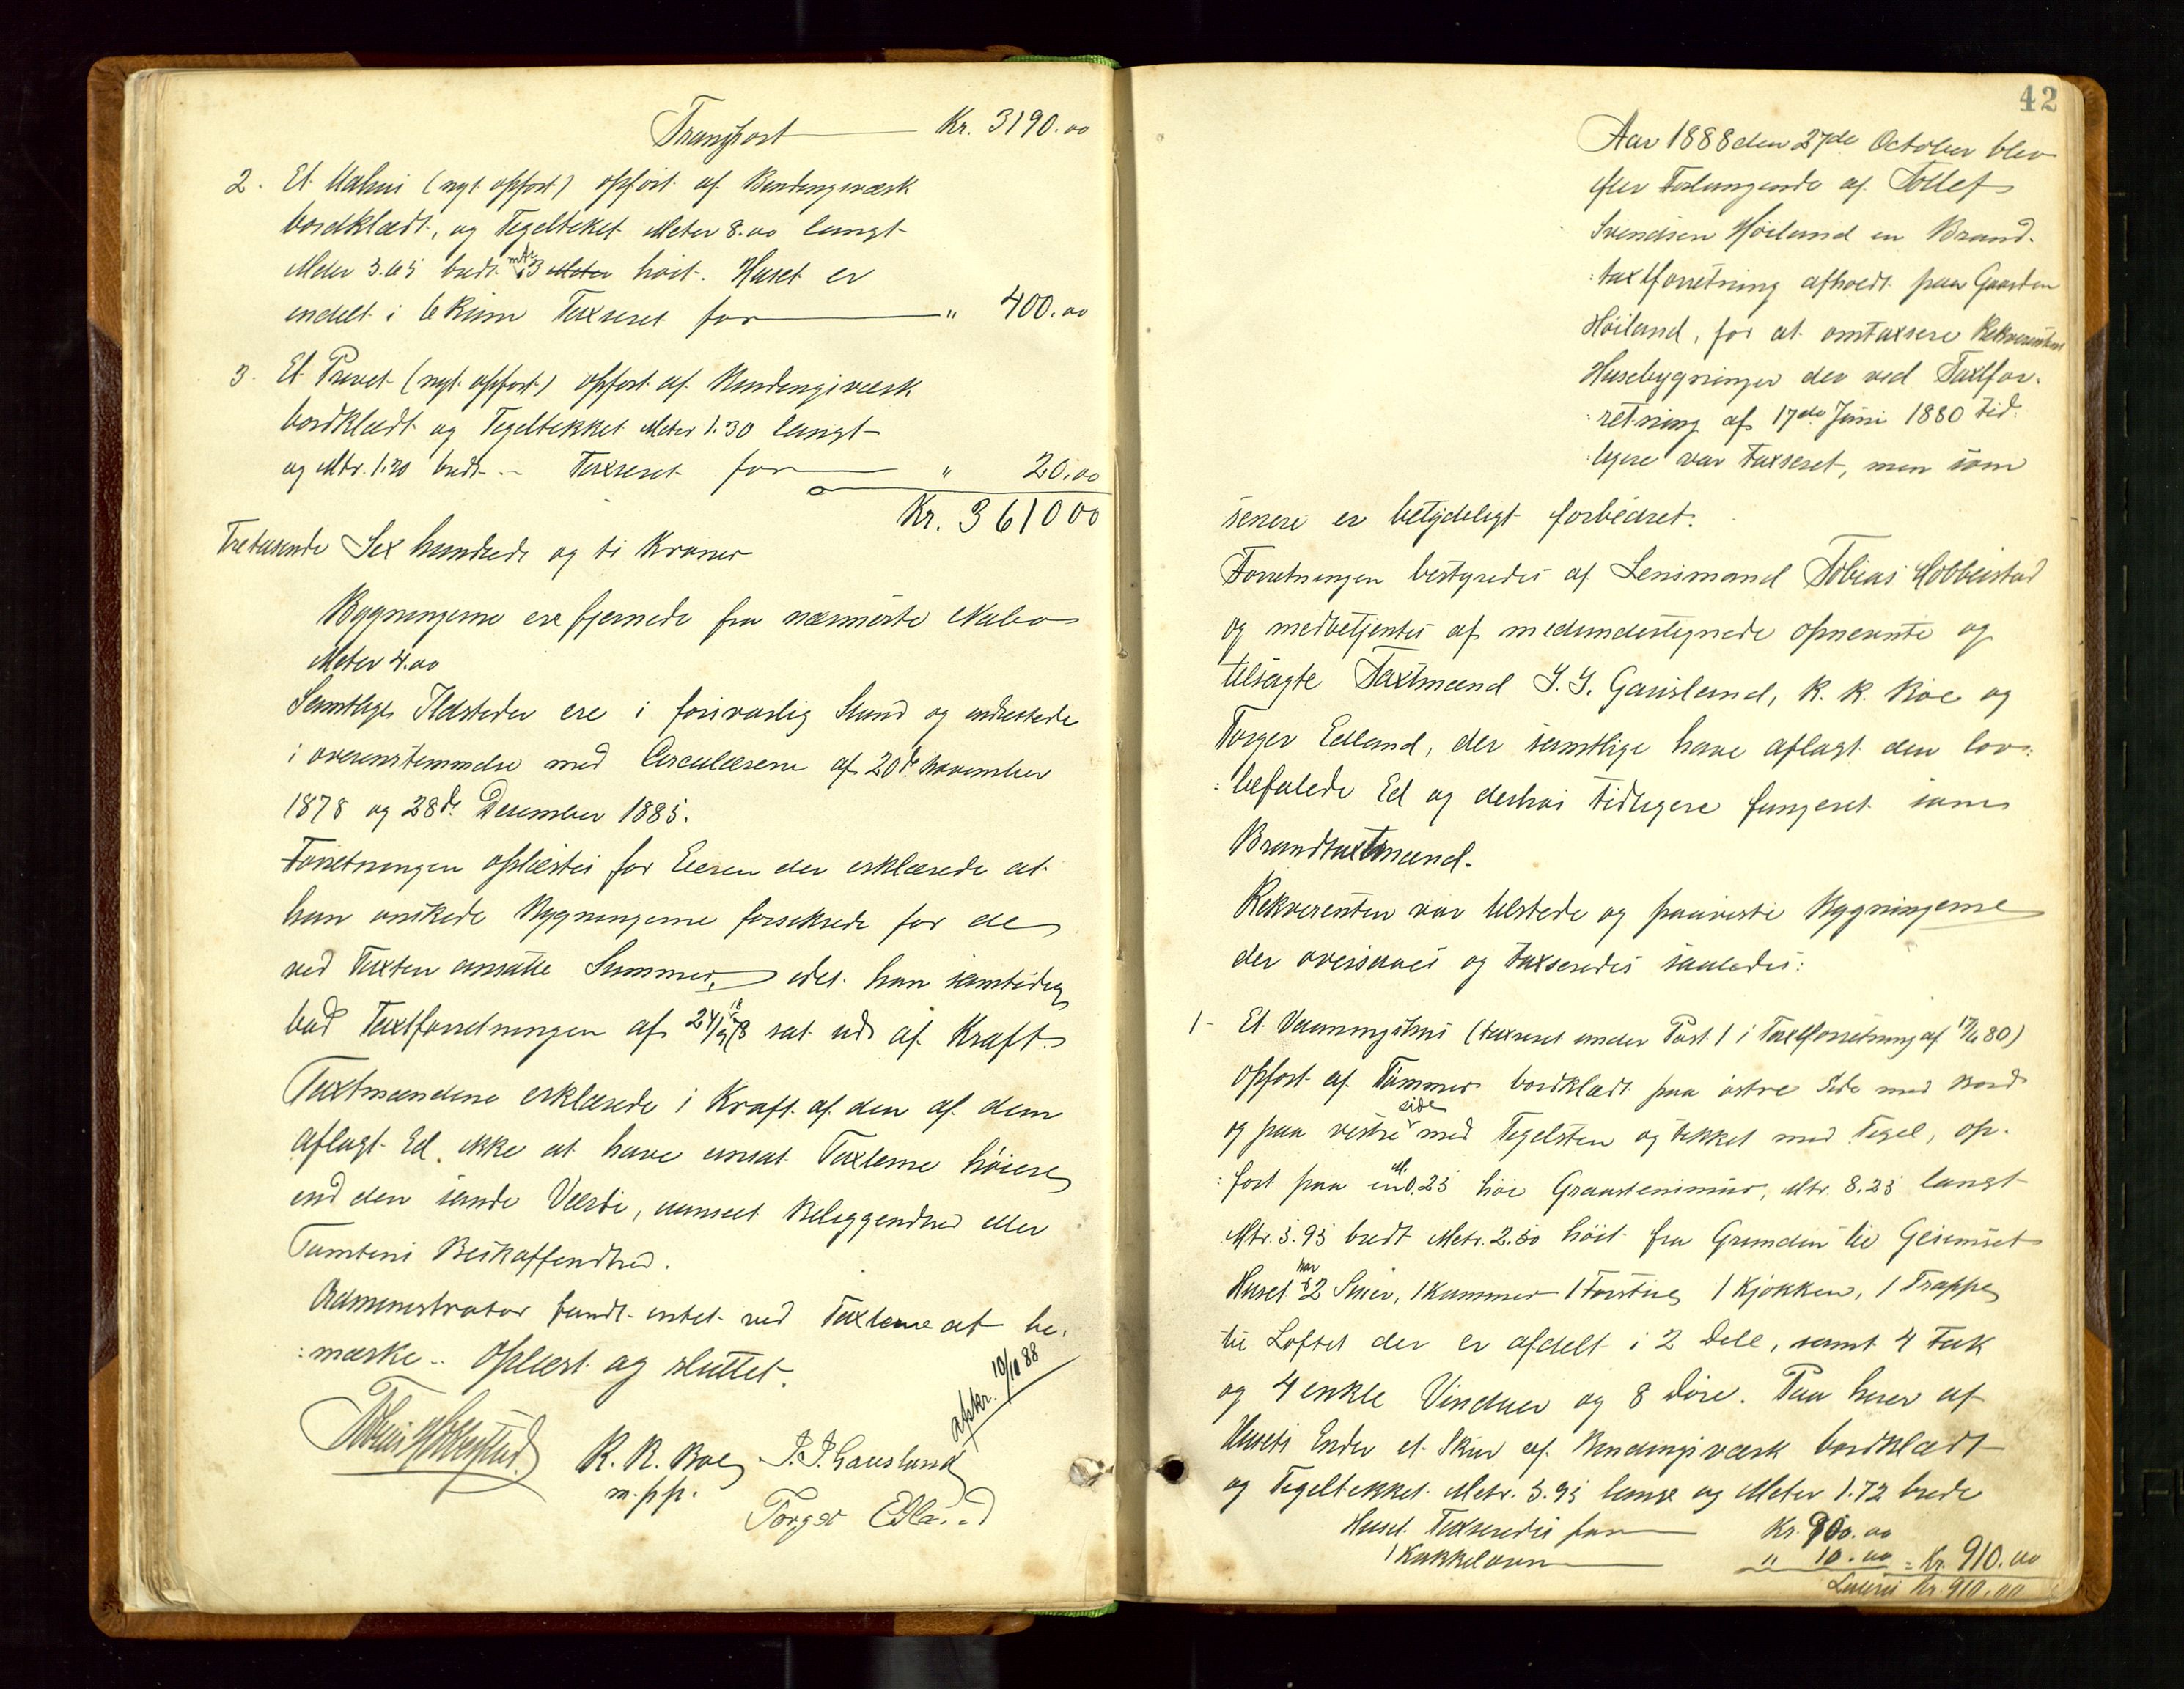 Transport Kr. 3190.00
2. Et Udhus (nyt opført) opført af Bindingsværk
bordklædt, og Tegeltekket Meter 8.00 langt
Meter 3.65 bredt mtr 3 Meter høit. Huset er
indelt i 6 Rum Taxseret for " 400.00
3. Et Privet (nyt opført) opført af Bindingsværk
bordklædt og Tegeltekket Meter 1.30 langt
og Mtr. 1.20 bredt - Taxseret for " 20.00
Kr. 361000
Tretusende Sex hundrede og ti Kroner
Bygningerne ere fjernede fra nærmeste Nabo
Meter 4.00
Samtlige Ildsteder ere i forsvarlig Stand og indrettede
i overenstemmelse med Circulærerne af 20de November
1878 og 28de Desember 1885.
Forretningen oplæstes for Eieren der erklærede at
han ønskede Bygningerne forsikrede for de
ved Taxten ansatte Summer, idet han samtidig
bad Taxtforretningen af 24/9 18 sat ud af Kraft.
Taxtmændene erklærede i Kraft af den af dem
aflagt Ed, ikke at have ansat Taxterne høiere
end den sande Værdi, uanseet Beliggenhed eller
Tomtens Beskaffenhed.
Administrator fandt intet ved Taxterne at be-
:mærke. Oplæst og sluttet.
afskr. 10/10 88
Tobias Hobbestad
R. R. Boe J. J. Gausland
m. p. p.
Torger Edland
42
Aar 1888 den 27de October blev
efter Forlangende af Tollef
Svendsen Høiland en Brand-
:taxtforretning afholdt paa Gaarden
Høiland, for at omtaxsere Rekvirentens
Husebygninger der ved Taxtfor-
:retning af 17de Juni 1880 tid-
:ligere var taxseret, men som
senere er betydeligt forbedret.
Forretningen bestyredes af Lensmand Tobias Hobbestad
og medbetjentes af medundertegnede opnevnte og
tilsagte Taxtmænd J. J. Gausland, R. R. Boe og
Torger Edland, der samtlige have aflagt den lov-
:befalede Ed og derhos tidligere fungeret som
Brandtaxtmænd.
Rekvirenten var tilstede og paaviste Bygningerne
der oversaaes og taxseredes saaledes:
1- Et Vaaningshus (taxseret under Post 1 i Taxtforretning af 17/6 80)
opført af Tømmer bordklædt paa østre Side med Bord
og paa vestre side med Tegelsten og tekket med Tegel, op-
:ført paa en M. 0.25 høi Graastensmur, Mtr. 8.25 langt
Mtr. 5.95 bredt Metr. 2.50 høit fra Grunden til Gesimset
Huset har 2 Stuer, 1 Kammer 1 Forstue, 1 Kjøkken, 1 Trappe
til Loftet der er afdelt i 2 Dele, samt 4 Fak
og 4 enkle Vinduer og 8 Døre. Paa hver af
Husets Ender et Skur af Bindingsværk bordklædt
og Tegeltekket Metr. 5.95 lange og Meter 1.72 brede
Huset Taxseredes for Kr. 900.00
1 Kakkelovn " 10.00 = Kr. 910.00
Lateris Kr. 910.00